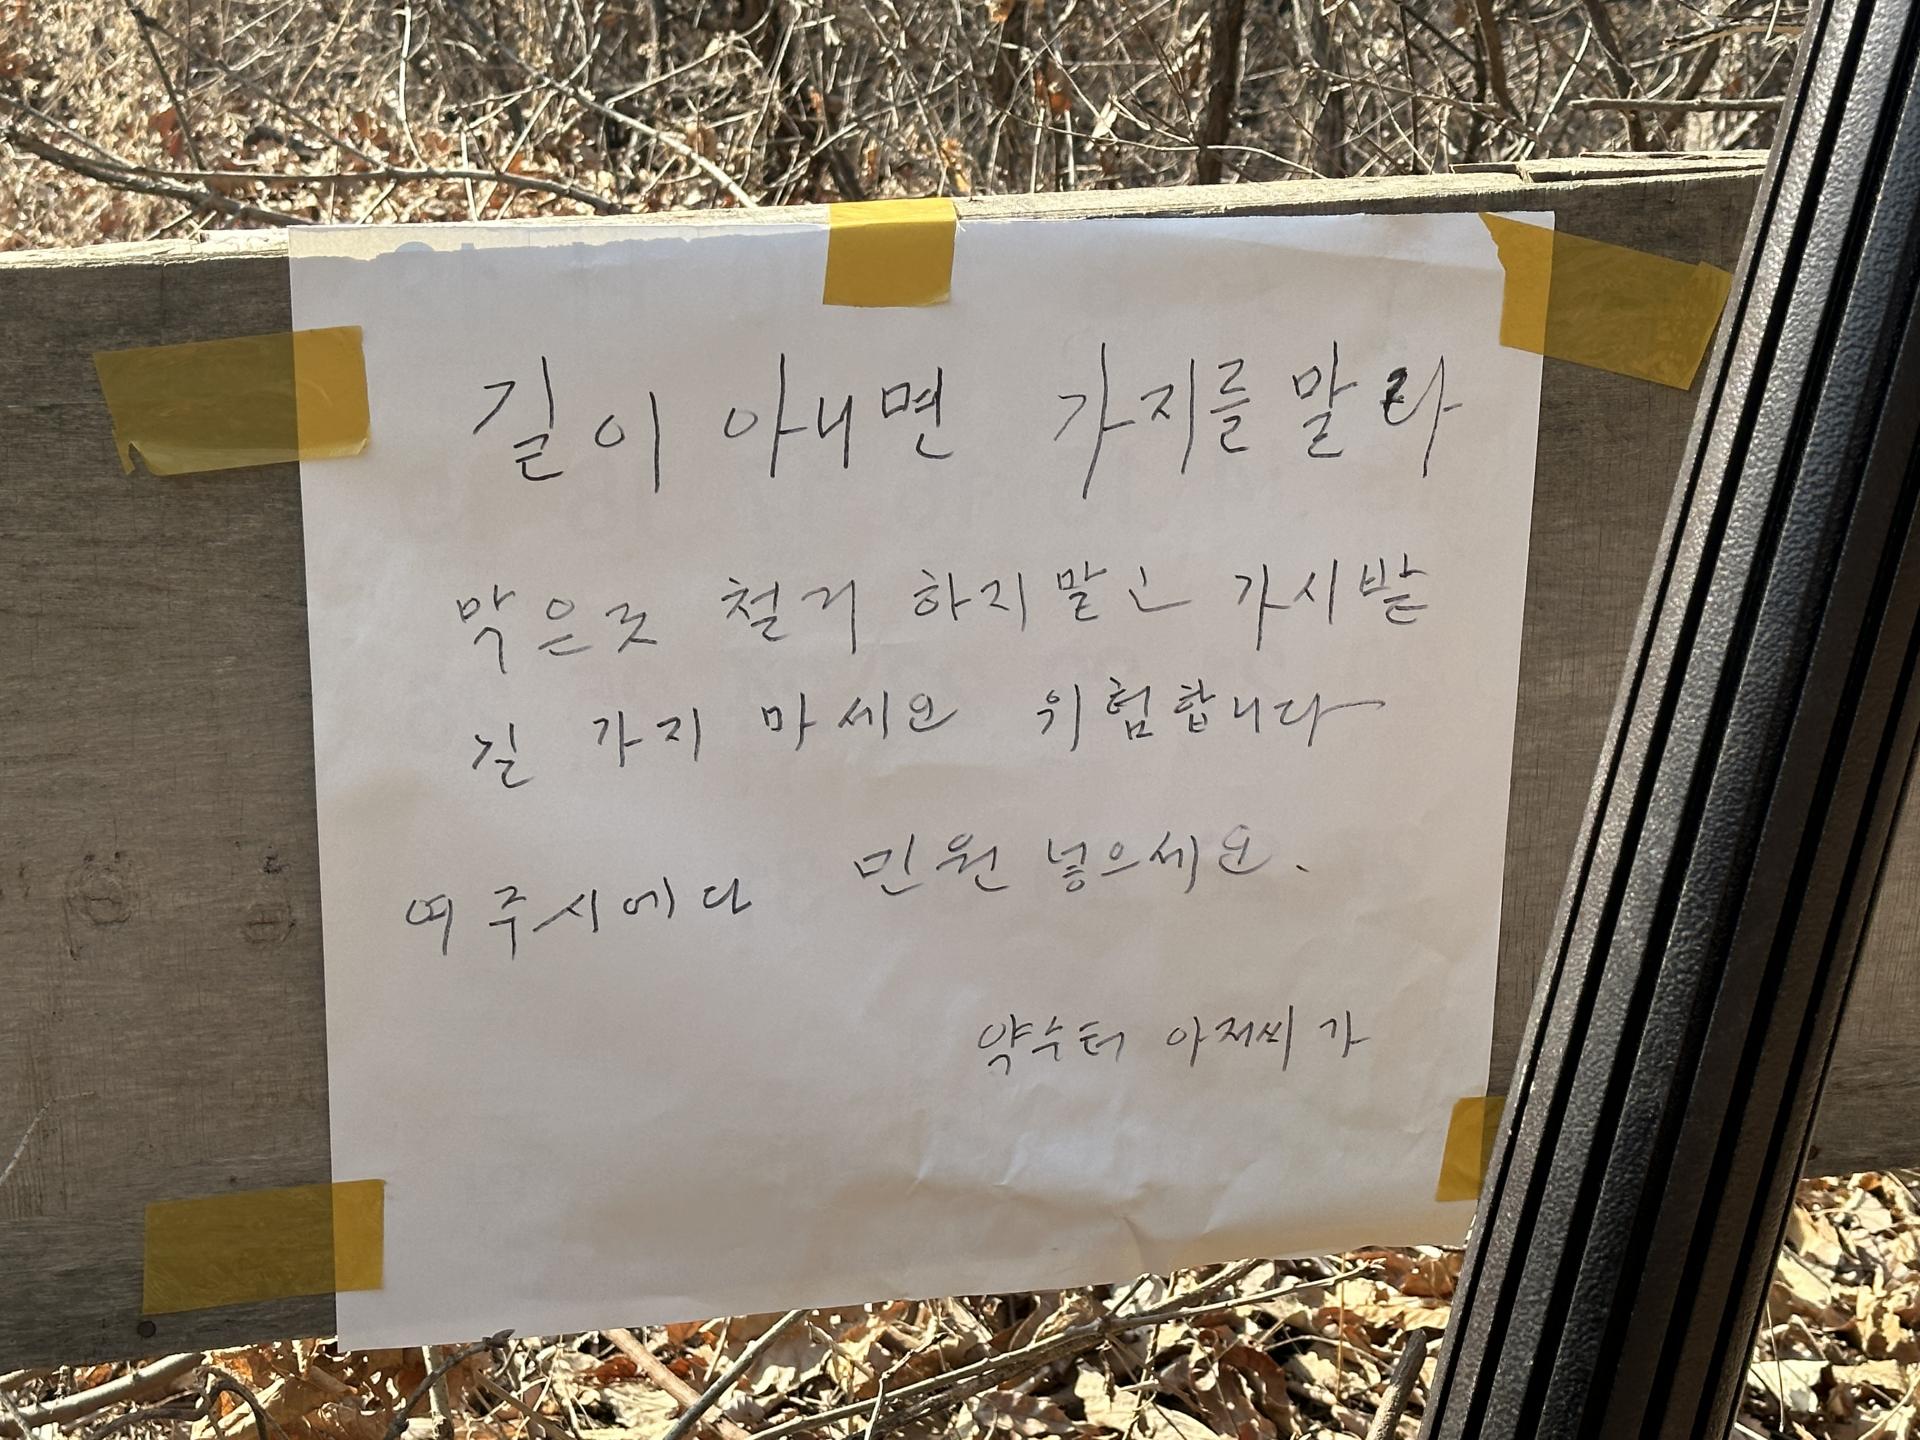 길이 아니면 가지를 말라
막은곳 철거 하지말고 가시밭
길 가지 마세요 위험합니다
여주시에다 민원 넣으세요.
약수터 아저씨가